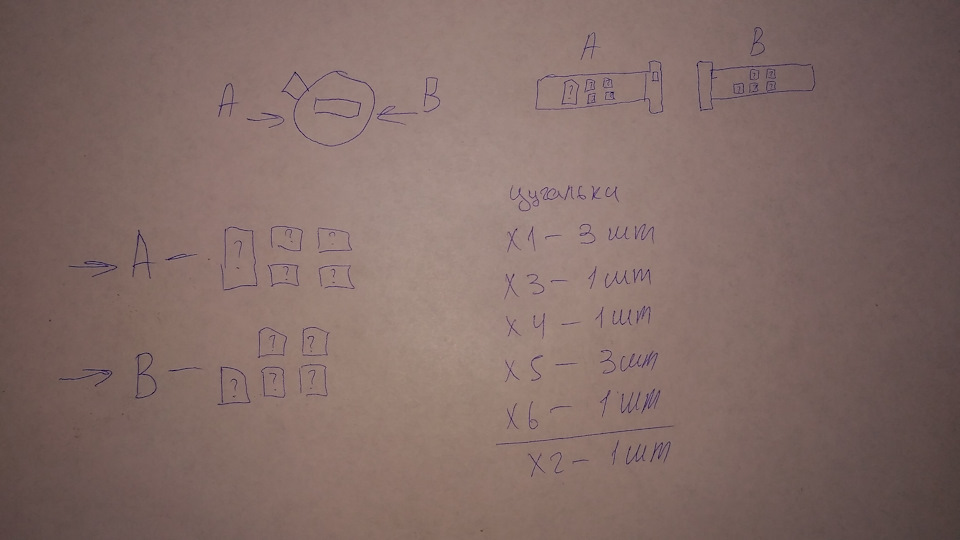 A B
A B
? ? ? ? ?
? ? ? ? ?
A – ? ? ?
? ?
B – ? ?
? ? ?
цугальки
x1 – 3 шт
x3 – 1 шт
x4 – 1 шт
x5 – 3 шт
x6 – 1 шт
x2 – 1 шт